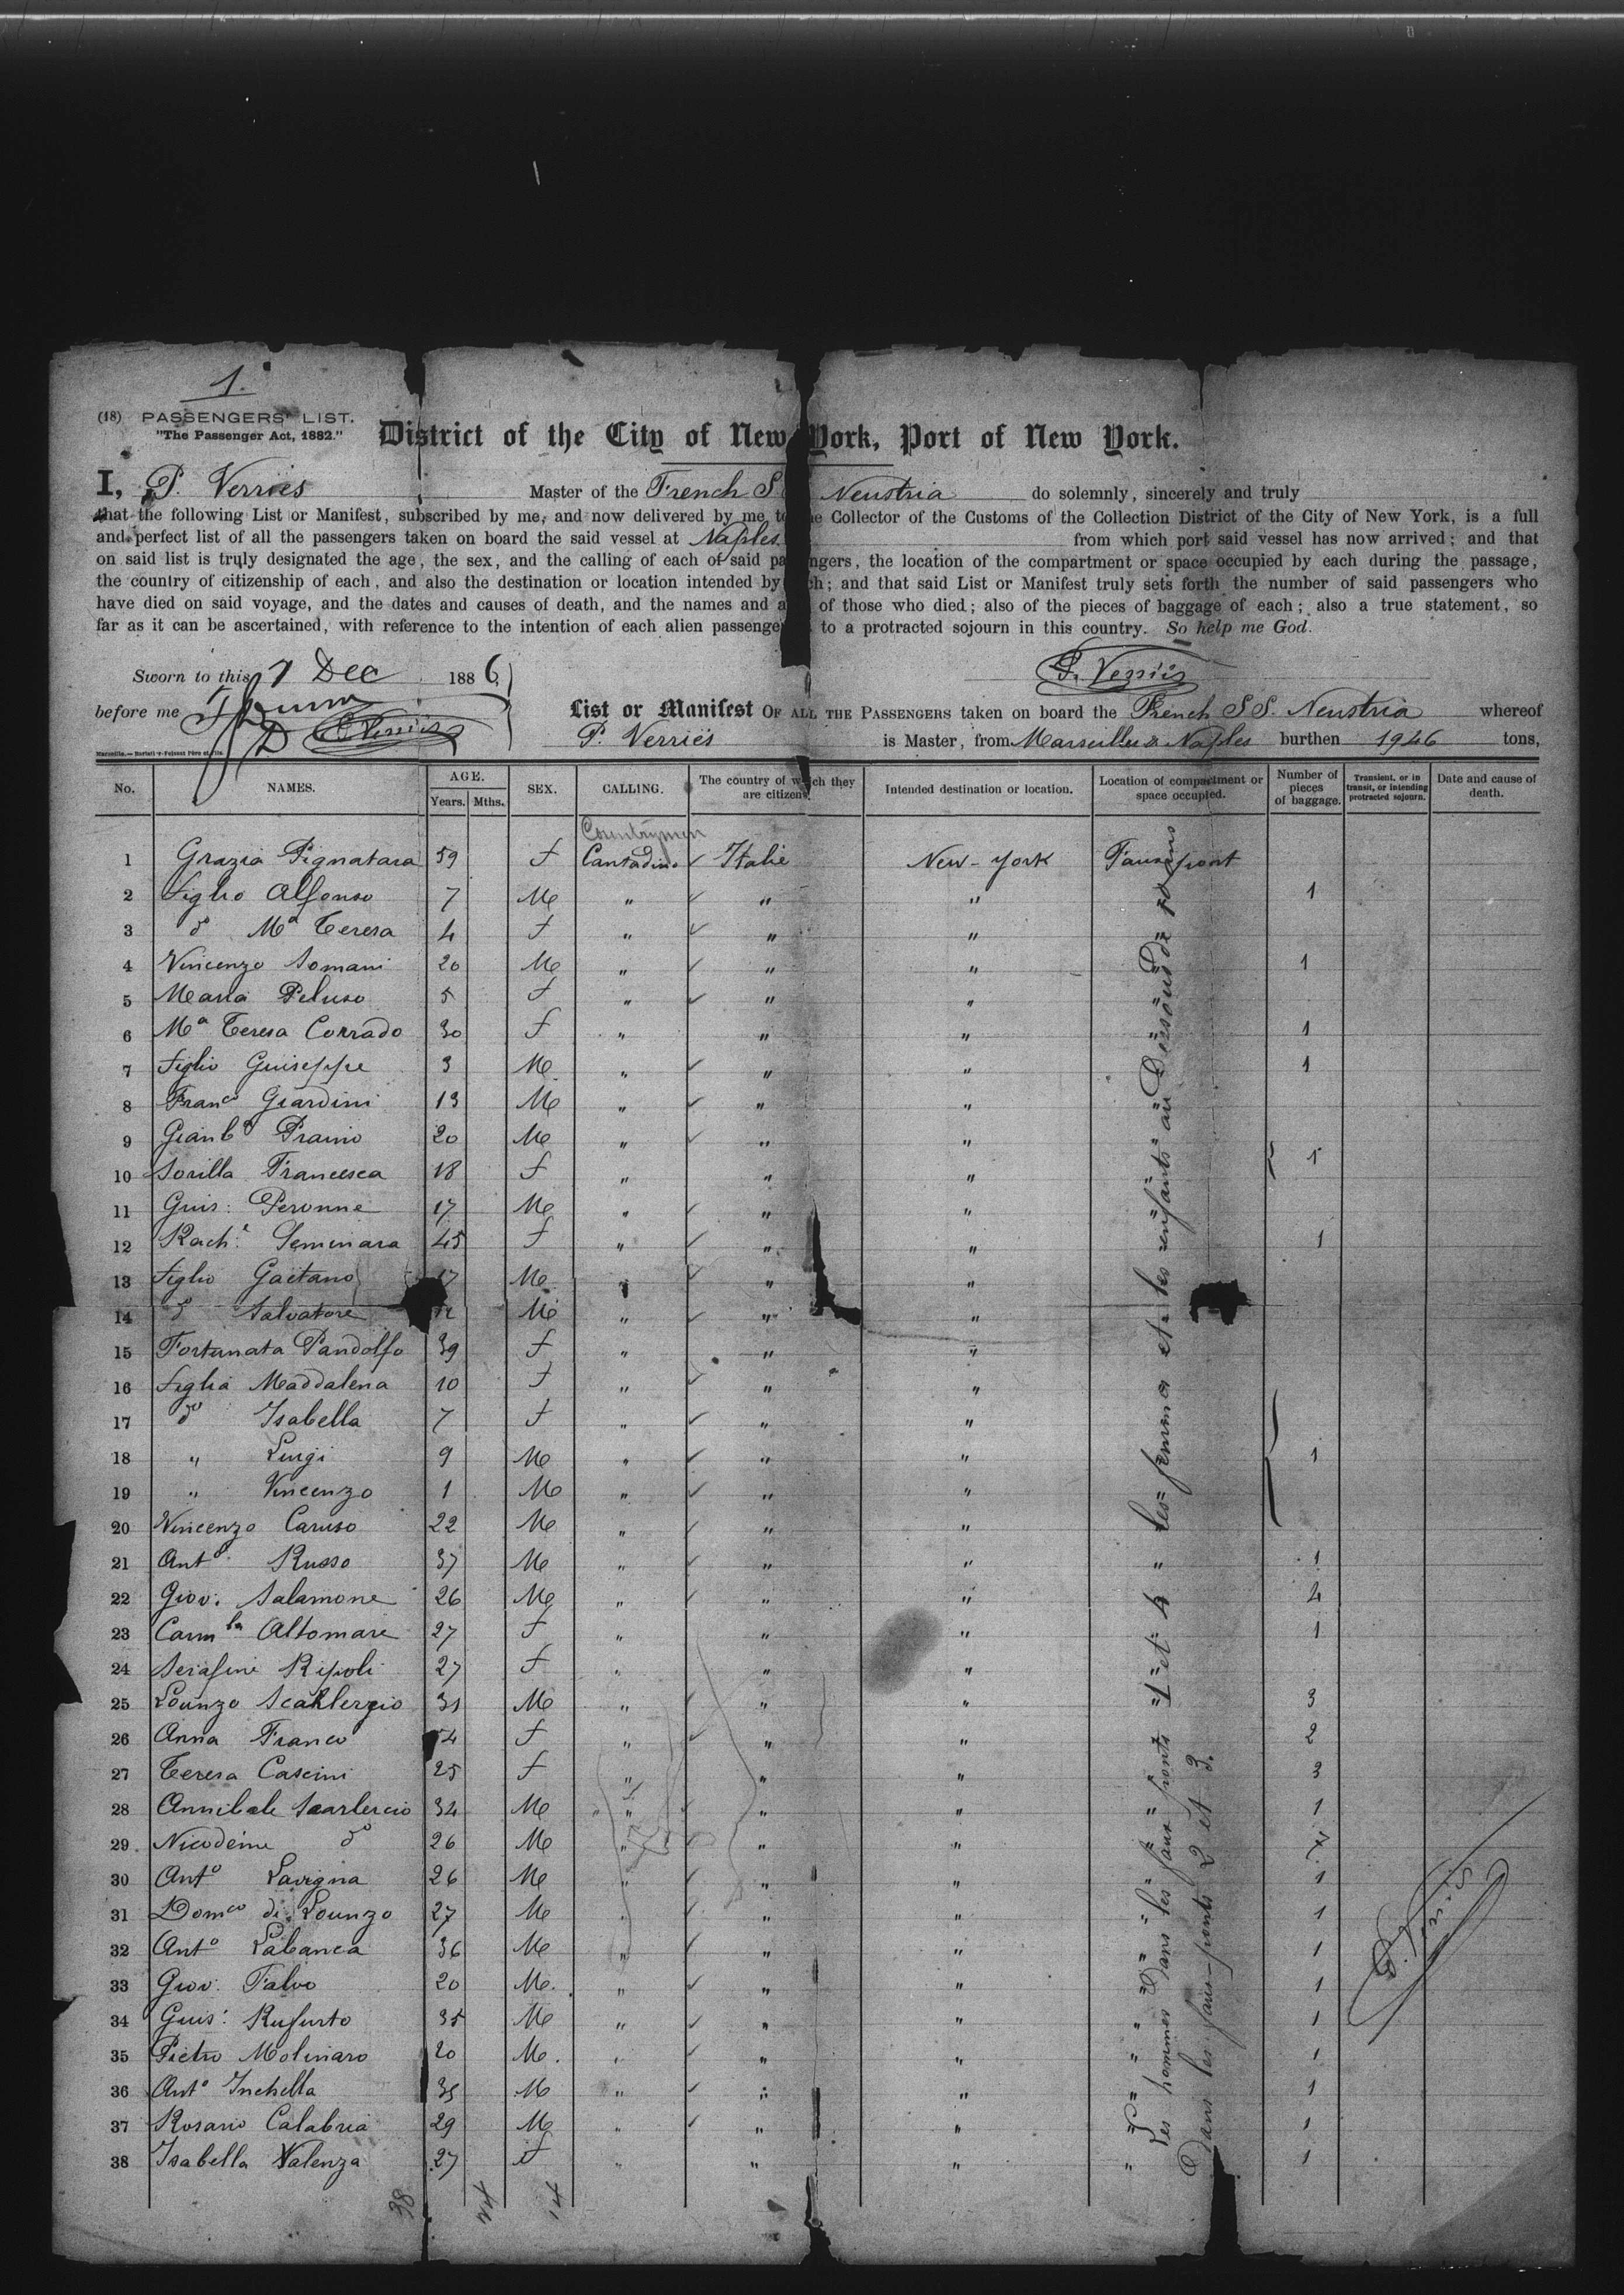 1.
(18) PASSENGERS' LIST.
"The Passenger Act, 1882."
District of the City of New York, Port of New York.
I, P. Verriès Master of the French S Neustria do solemnly, sincerely and truly
that the following List or Manifest, subscribed by me, and now delivered by me to the Collector of the Customs of the Collection District of the City of New York, is a full
and perfect list of all the passengers taken on board the said vessel at Naples from which port said vessel has now arrived; and that
on said list is truly designated the age, the sex, and the calling of each of said pa ngers, the location of the compartment or space occupied by each during the passage,
the country of citizenship of each, and also the destination or location intended by ch; and that said List or Manifest truly sets forth the number of said passengers who
have died on said voyage, and the dates and causes of death, and the names and a of those who died; also of the pieces of baggage of each; also a true statement, so
far as it can be ascertained, with reference to the intention of each alien passenge to a protracted sojourn in this country. So help me God.
Sworn to this 7 Dec 1886
P. Verriès
before me
List or Manifest OF ALL THE PASSENGERS taken on board the French S.S. Neustria whereof
P. Verriès is Master, from Marseilles & Naples burthen 1946 tons,
No. NAMES. AGE. Years. Mths. SEX. CALLING. The country of which they are citizens. Intended destination or location. Location of compartment or space occupied. Number of pieces of baggage. Transient, or in transit, or intending protracted sojourn. Date and cause of death.
Countrymen
1 Grazia Pignatara 59 f Contadino Italie New-York Fauxpont
2 figlio Alfonso 7 M " " " 1
3 do Ma Teresa 4 f " " "
4 Vincenzo Somani 20 M " " " 1
5 Maria Peluso 5 f " " "
6 Ma Teresa Corrado 30 f " " " 1
7 figlio Guiseppe 3 M " " " 1
8 Franco Giardini 13 M " " "
9 Gianba Praino 20 M " " "
10 Sorilla Francesca 18 f " " " 1
11 Guis: Peronne 17 M " " "
12 Rach: Seminara 45 f " " " 1
13 figlio Gaetano 17 M " " "
14 do Salvatore M " " "
15 Fortunata Pandolfo 39 f " " "
16 figlia Maddalena 10 f " " "
17 do Isabella 7 f " " "
18 " Luigi 9 M " " " 1
19 " Vincenzo 1 M " " "
20 Vincenzo Caruso 22 M " " "
21 Anto Russo 37 M " " " 1
22 Giov: Salamone 26 M " " " 4
23 Carmla Altomare 27 f " " " 1
24 Serafini Ripoli 27 f " " "
25 Lounzo Scahlercio 31 M " " " 3
26 Anna Franco 54 f " " " 2
27 Teresa Cascini 25 f " " " 3
28 Annibale Scarlercio 34 M " " " 1
29 Nicodeine do 26 M " " "
30 Anto Lavigna 26 M " " " 1
31 Domco di Lounzo 27 M " " " 1
32 Anto Labanca 36 M " " " 1
33 Giov. Talvo 20 M. " " " 1
34 Guis: Rufurto 35 M " " " 1
35 Pietro Molinaro 20 M. " " " 1
36 Anto Inchella 35 M " " " 1
37 Rosario Calabria 29 M " " " 1
38 Isabella Valenza 27 f " " " 1
Les hommes dans les faux ponts 1 et 4 les femmes et les enfants au Dessous de
Dans les faux-ponts 2 et 3.
P. Verriès
38 24 14